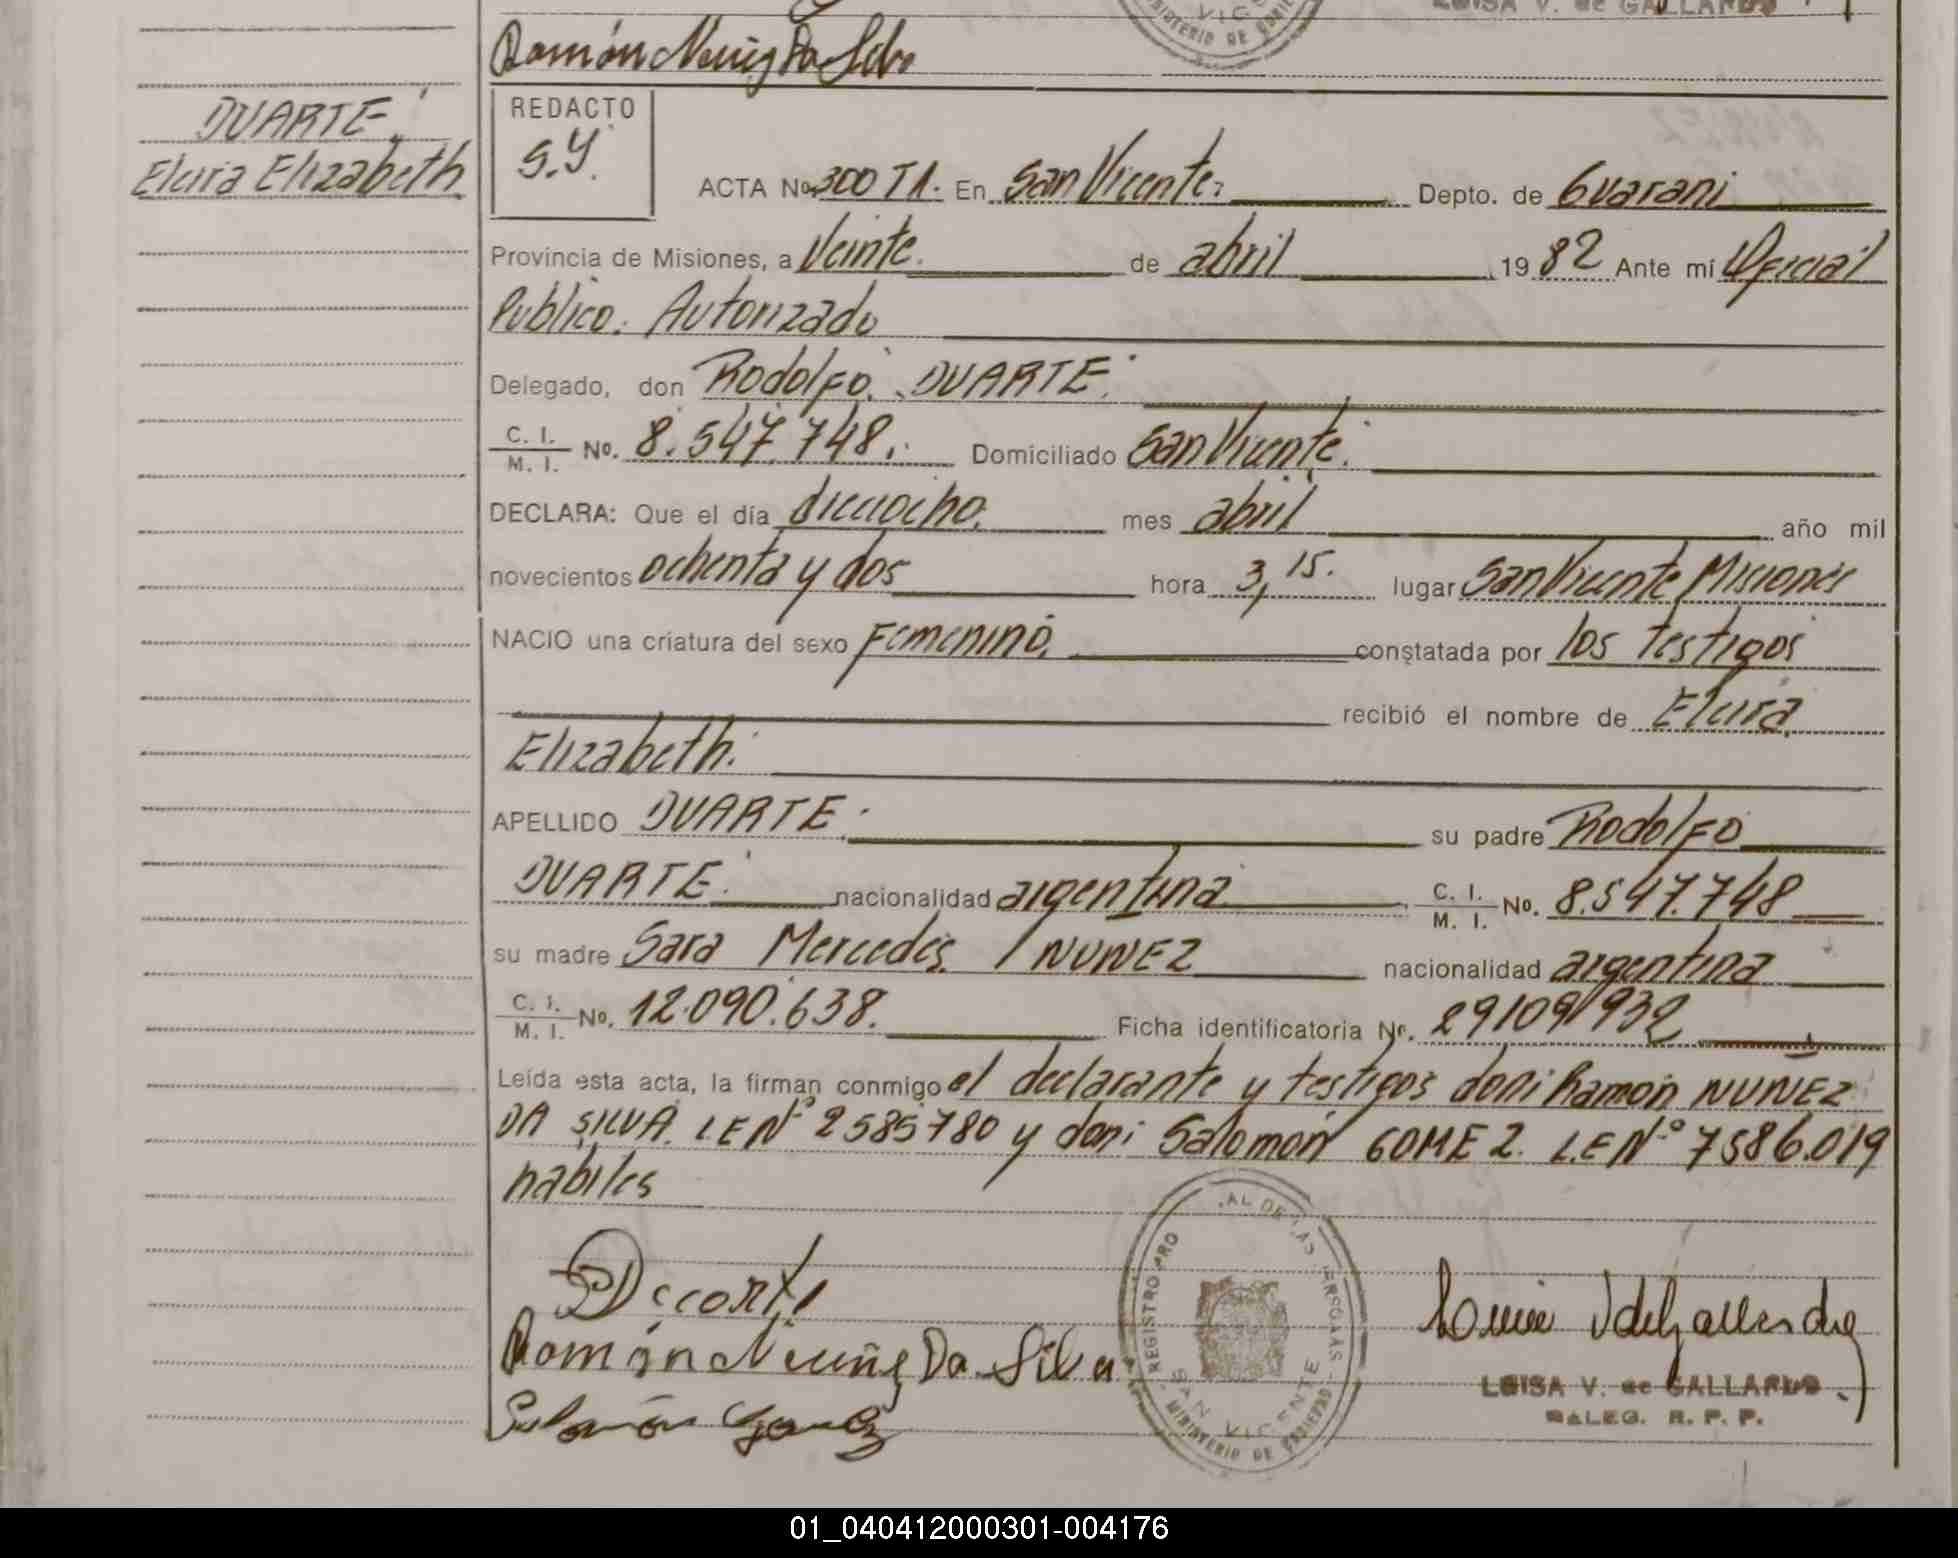 LUISA V. de GALLARDO
Ramón Nuñez Da Silva
VIC
MINISTERIO DE GOBIERNO
DUARTE
Elcira Elizabeth
REDACTO
S.Y.
ACTA No 300 TA. En San Vicente. Depto. de Guarani
Provincia de Misiones, a Veinte. de abril 1982 Ante mí Oficial
Publico. Autorizado
Delegado, don Rodolfo. DUARTE.
C. I.
M. I. No. 8.547.748. Domiciliado San Vicente.
DECLARA: Que el día dieciocho. mes abril año mil
novecientos ochenta y dos hora 3,15. lugar San Vicente Misiones
NACIO una criatura del sexo Femenino. constatada por los testigos
recibió el nombre de Elcira
Elizabeth.
APELLIDO DUARTE. su padre Rodolfo
DUARTE. nacionalidad argentina C. I.
M. I. No. 8.547.748
su madre Sara Mercedes NUNEZ nacionalidad argentina
C. I.
M. I. No. 12.090.638. Ficha identificatoria Nr. 29109932
Leída esta acta, la firman conmigo el declarante y testigos don: Ramon NUNEZ
DA SILVA. L.E Nº 2585780 y don: Salomón GOMEZ. L.E Nº 7586.019
habiles
Ramón Nuñez Da Silva
Salomón Gomez
REGISTRO PRO AL DE LAS PERSONAS
SAN VICENTE
MINISTERIO DE GOBIERNO
LUISA V. de GALLARDO
DELEG. R. P. P.
01_040412000301-004176